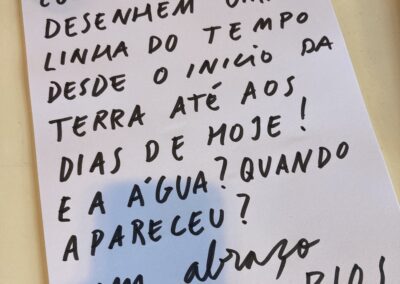 DESENHEM UMA
LINHA DO TEMPO
DESDE O INICIO DA
TERRA ATÉ AOS
DIAS DE HOJE!
E A ÁGUA? QUANDO
APARECEU?
um abraço